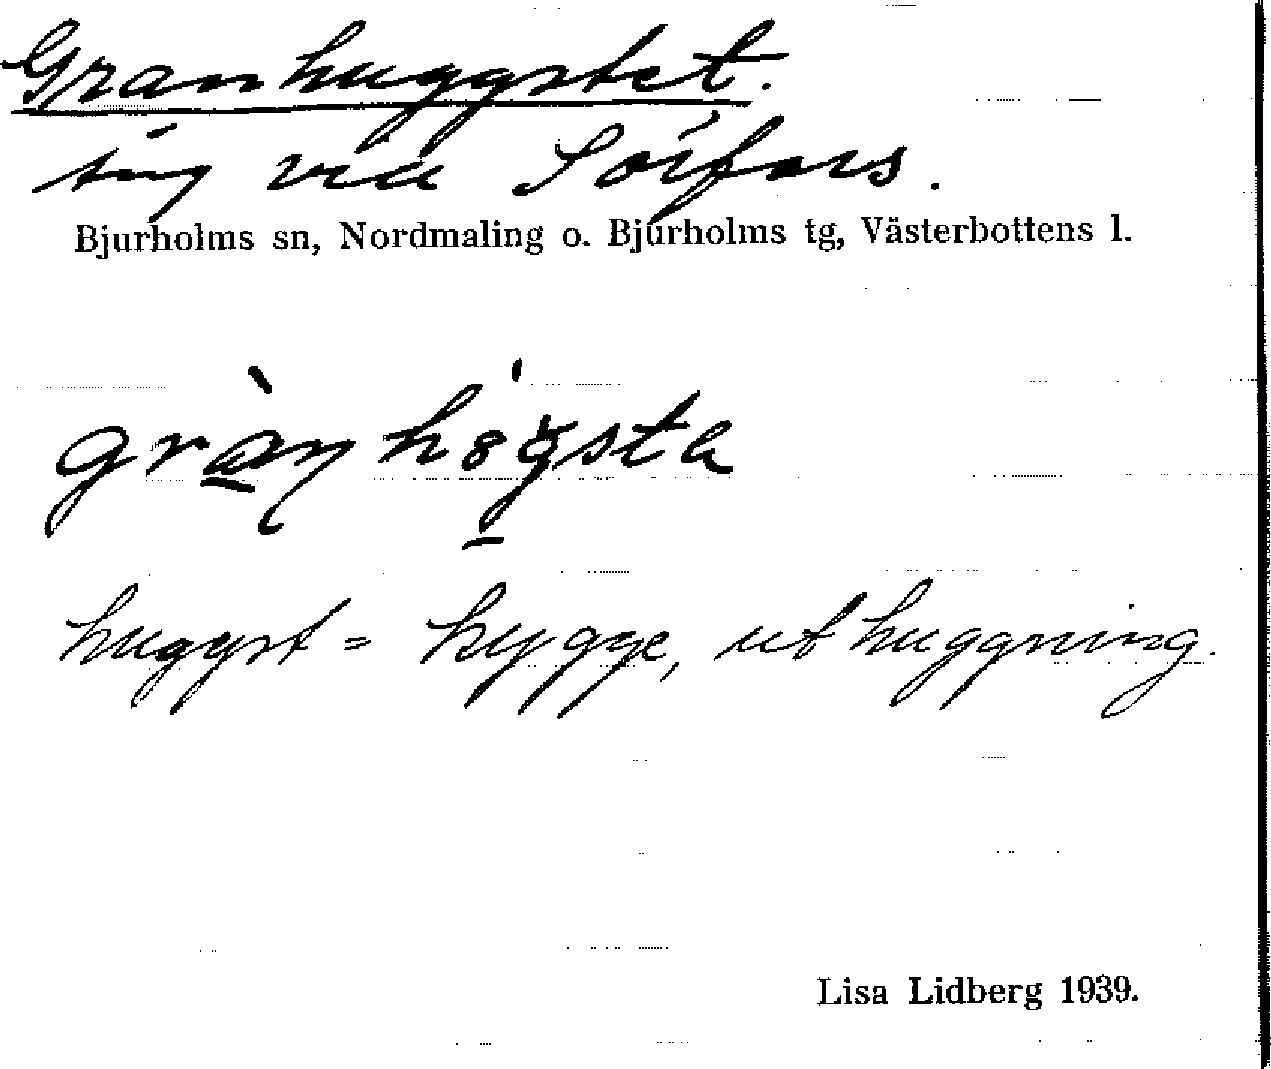 Granhuggstet.
äng vid Sörfors.
Bjurholms sn, Nordmaling o. Bjurholms tg, Västerbottens l.
huggst = hygge, uthuggning.
Lisa Lidberg 1939.